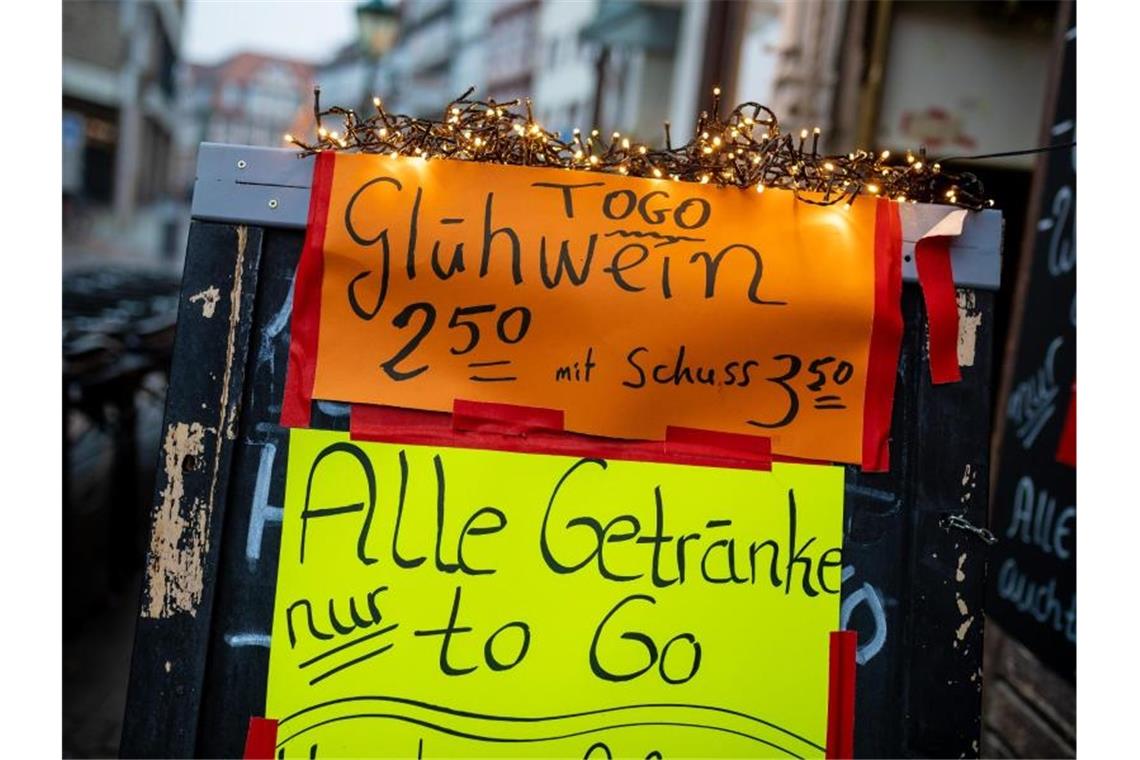 TOGO
Glühwein
2 50 mit Schuss 3 50
Alle Getränke
nur to Go
nur
Alle
auch